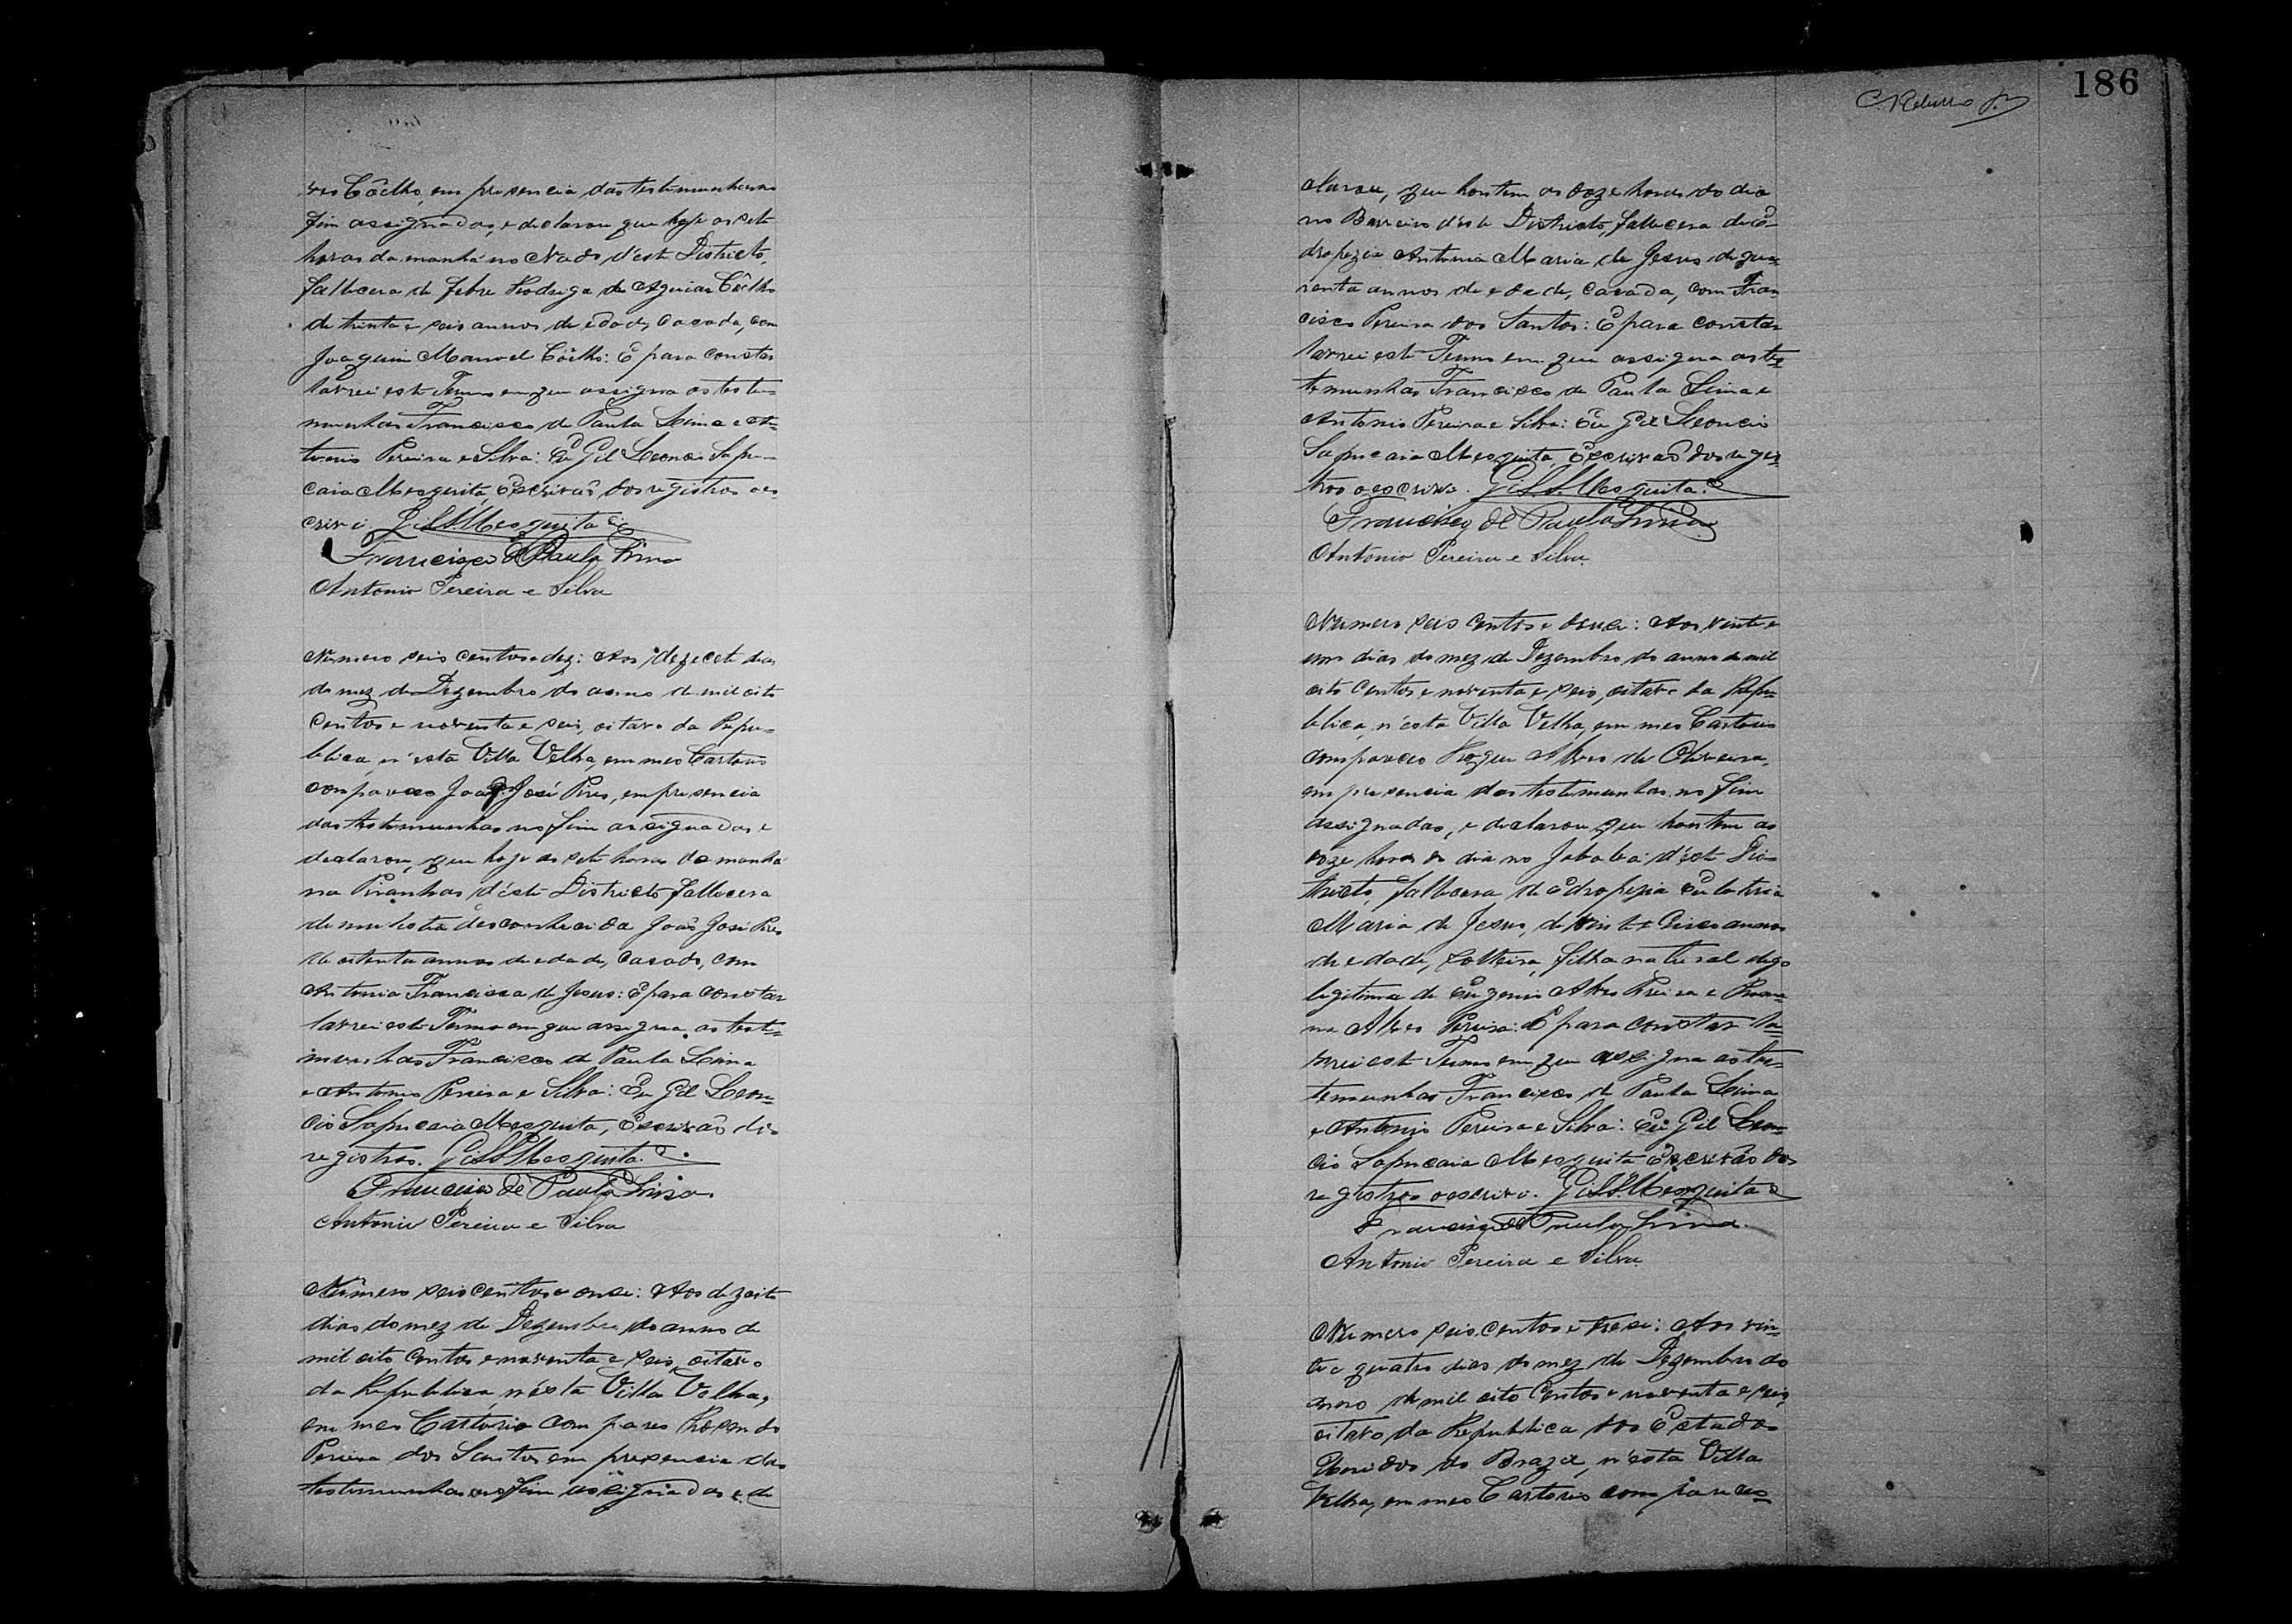 res Coêlho, em presencia das testemunhas no
fim assignadas, e declarou que hoje as sete
horas da manhá no Nado d'éste Districto,
falleceu de febre de Aguiar Coêlho
de trinta e seis annos de edade, casada, com
Joaquim Manoel Coêlho: E para constar
lavrei este Termo em que assigna as teste-
munhas Francisco de Paula Lima e An-
tonio Pereira e Silva: Eu Gil Leoncio Sapu-
caia Mesquita, Escrivaõ dos registros o es-
crivi. Gil L. S. Mesquita
Francisco de Paula Lima
Antonio Pereira e Silva
Numero seis centos e dez: Aos dezecete dias
do mez de Dezembro do anno de mil oito
centos e noventa e seis, oitavo da Repu-
blica, n'esta Villa Velha, em meo Cartorio
compareceo Joaõ José Pires, em presencia
das testemunhas no fim assignadas e
declarou, que hoje as sete horas da manha
na Piranhas d'éste Districto fallecera
de mulestia desconhecida Joaõ José Pires
de oitenta annos de edade, casado, com
Antonia Francisca de Jesus: E para constar
lavrei este Termo em que assigna as teste-
munhas Francisco de Paula Lima
e Antonio Pereira e Silva: Eu Gil Leon-
cio Sapucaia Mesquita, Escrivaõ dos
registros. Gil L. S. Mesquita
Francisco de Paula Lima
Antonio Pereira e Silva
Numero seis centos e onze: Aos dezoito
dias do mez de Dezembro do anno de
mil oito centos e noventa e seis, oitavo
da Republica, n'ésta Villa Velha,
em meo Cartorio compareo Rosendo
Pereira dos Santos em presencia das
testemunhas no fim assignadas e de
186
clarou, que hontem as doze horas do dia
no Barreiro d'éste Districto, fallecera de e-
dropezia Antonia Maria de Jesus, de qua-
renta annos de edade, casada, com Fran
cisco Pereira dos Santos: E para constar
lavrei este Termo em que assigna as tes-
temunhas Francisco de Paula Lima e
Antonio Pereira e Silva: Eu Gil Leoncio
Sapucaia Mesquita, Escrivaõ dos regis-
tros o escrivi. Gil L. S. Mesquita
Francisco de Paula Lima
Antonio Pereira e Silva
Numero seis centos e dose: Aos vinte e
um dias do mez de Dezembro do anno de mil
oito centos e noventa e seis, oitavo da Repu-
blica, n'ésta Villa Velha, em meo Cartorio
compareceo Roque Alves de Oliveira,
em presencia das testemunhas no fim
assignadas, e declarou que hontem as
doze horas do dia no d'éste Dis-
tricto, fallecera de edropezia Eulatria
Maria de Jesus, de vinte e cinco annos
de edade, solteira, filha natural digo
legitima de Eugenio Alves Pereira e
Alves Pereira: E para constar la-
vrei este Termo em que assigna as tes-
temunhas Francisco de Paula Lima
e Antonio Pereira e Silva: Eu Gil Leon-
cio Sapucaia Mesquita Escrivaõ dos
registros o escrivo. Gil L. S. Mesquita
Francisco de Paula Lima
Antonio Pereira e Silva
Numero seis centos e trese: Aos vin-
te e quatro dias do mez de Dezembro do
anno de mil oito centos e noventa e seis,
oitavo da Republica dos Estados
Unidos do Brazil, n'ésta Villa
Velha, em meo Cartorio compareceo